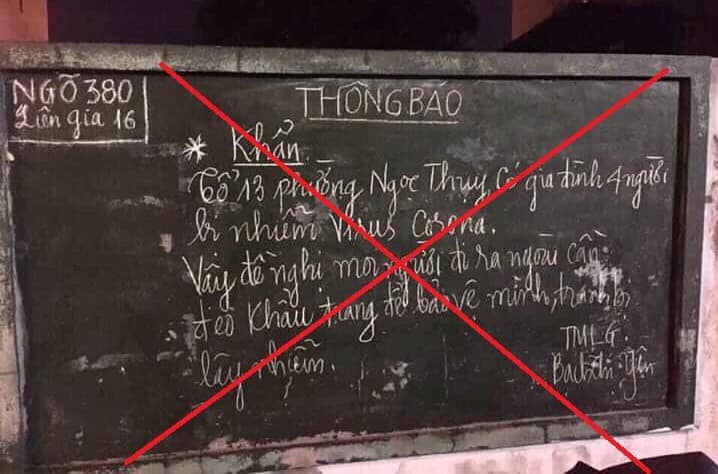 NGÕ 380
Liên gia 16
THÔNG BÁO
* Khẩn.
Tổ 13 phường Ngọc Thụy, Có gia đình 4 người
bị nhiễm Virus Corona.
Vậy đề nghị mọi người đi ra ngoài cần
đeo khẩu trang để bảo vệ mình, tránh bị
lây nhiễm.
TMLG.
Bạch Yến